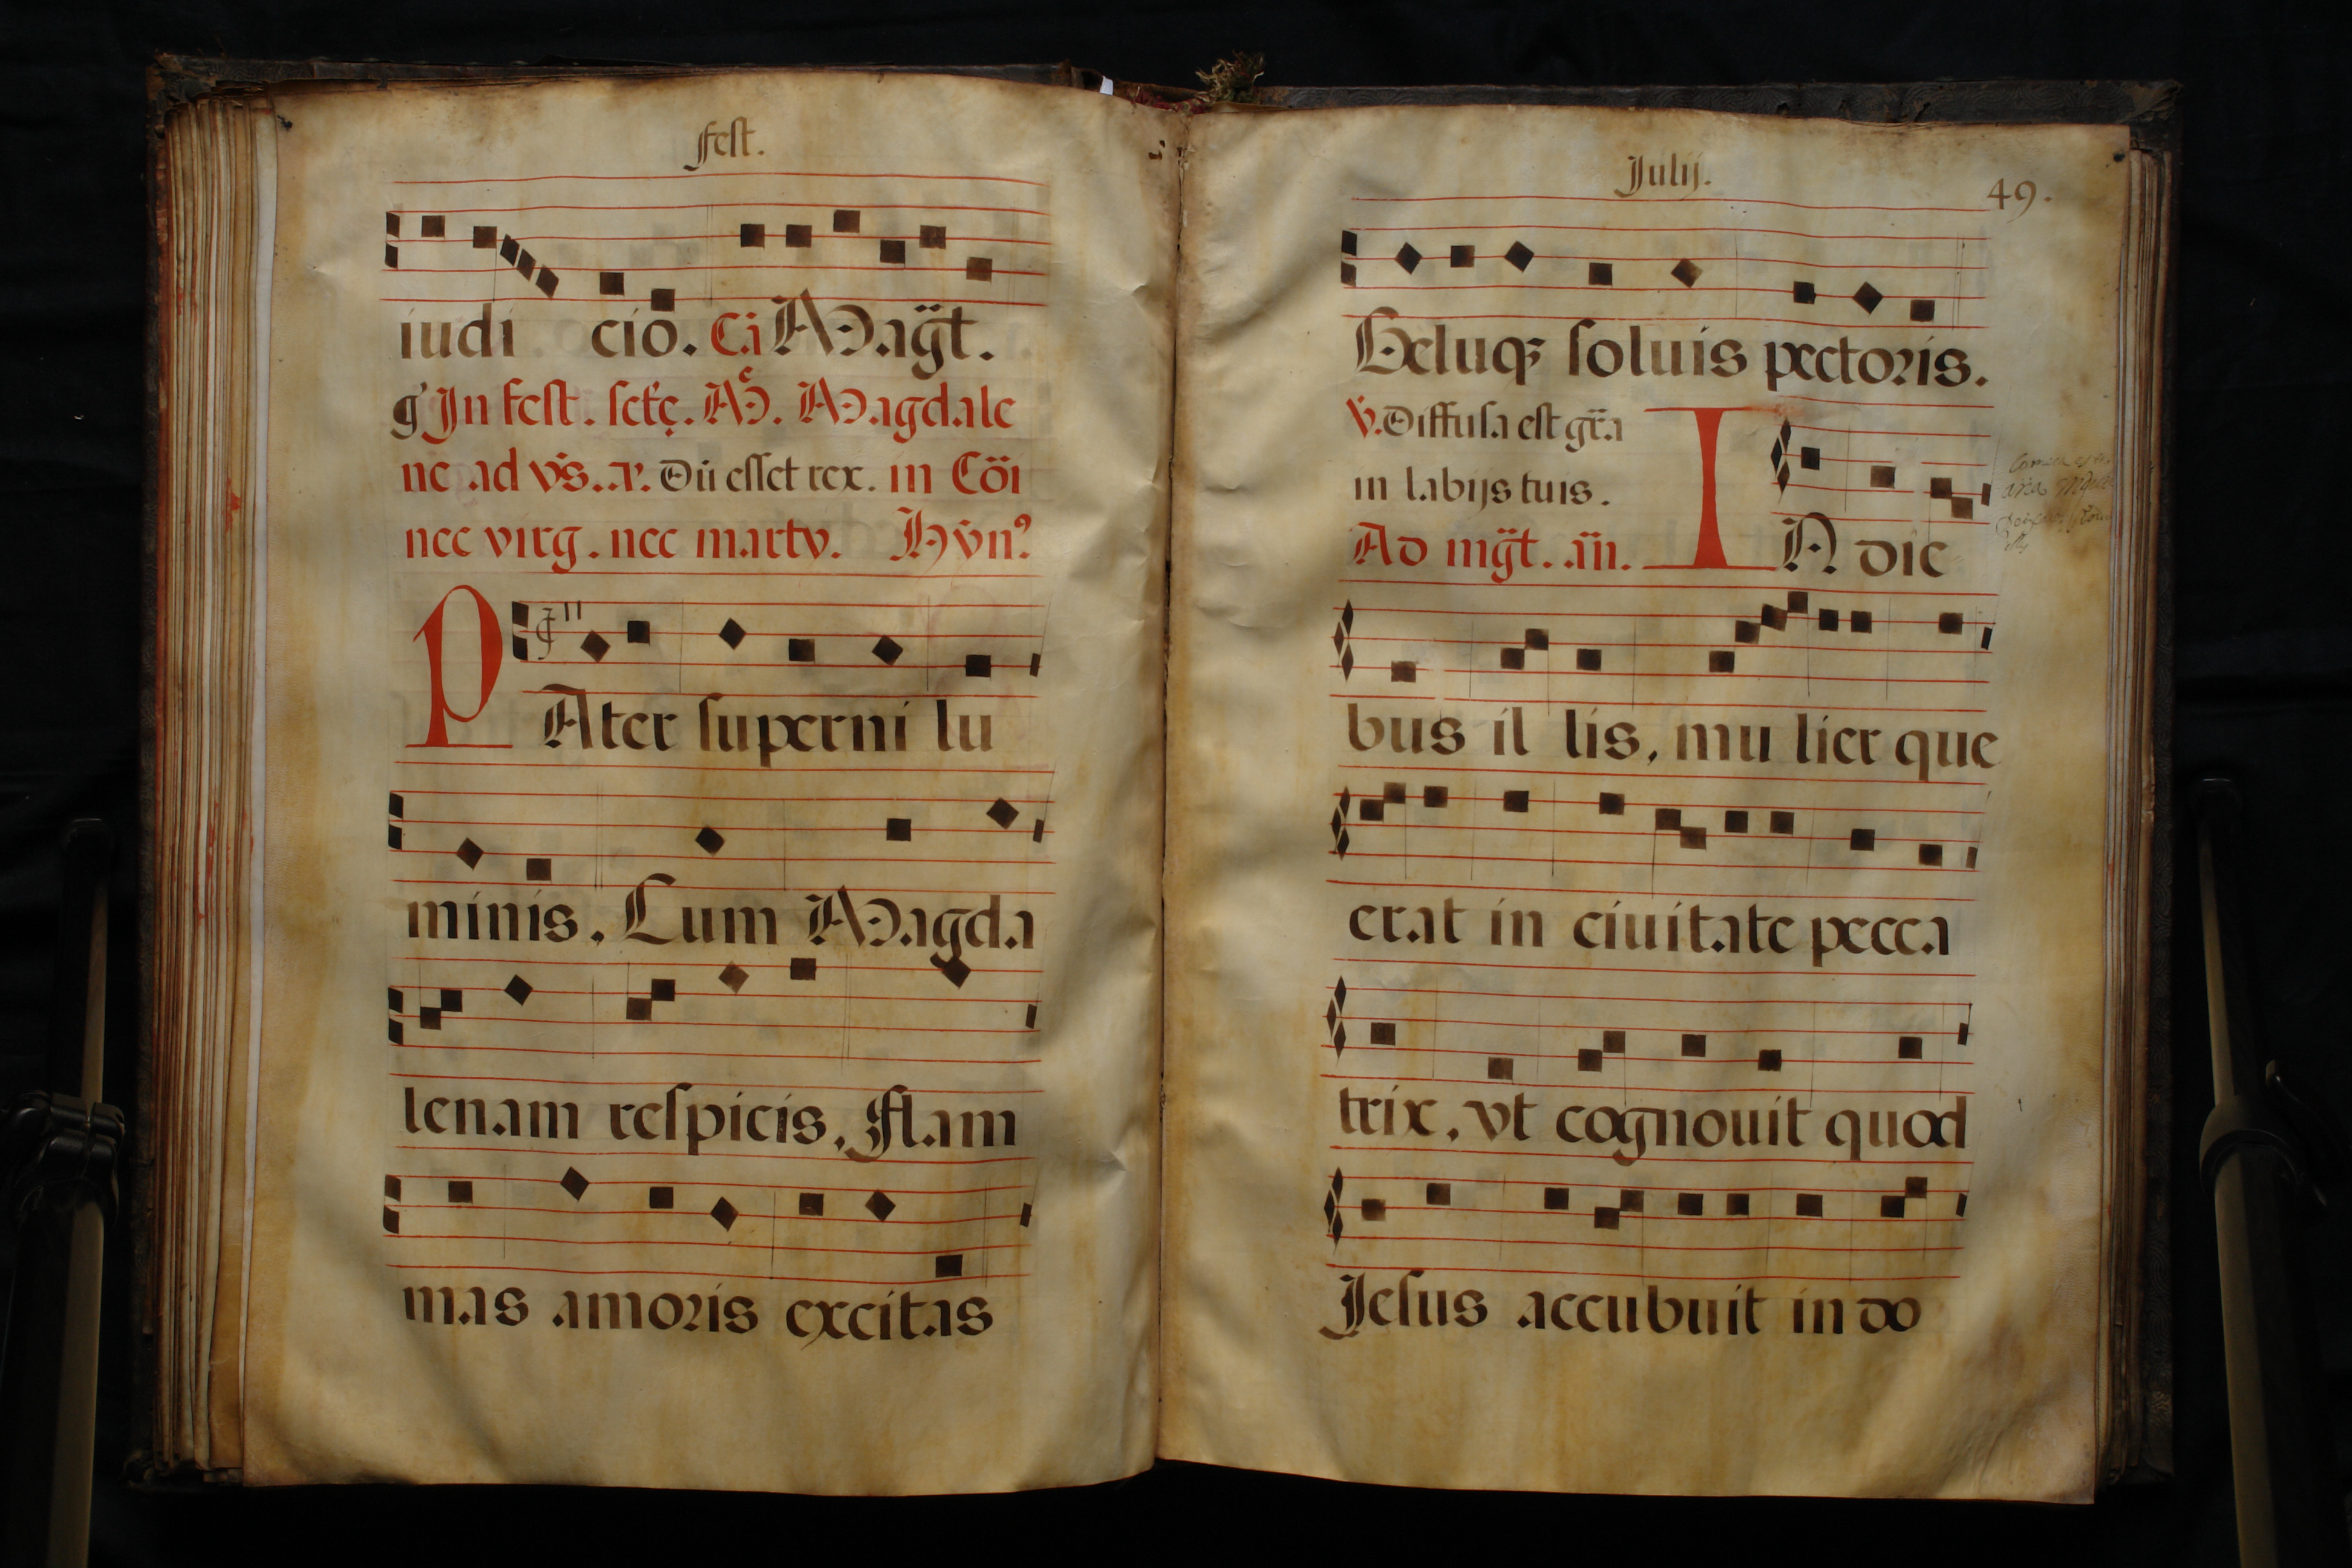 fest.
iudi cio. Cã Magt̃.
g In fest. sctę. Mᵉ. Magdale
ne ad vs̃. a. Dũ esset rex. in Cõi
nec virg. nec marty. Hyn⁹
PAter superni lu
minis, Cum Magda
lenam respicis, Flam
mas amoris excitas
Julij. 49.
Geluq; soluis pectoris.
℣. Diffusa est gr̃a
in labijs tuis.
Ad mgt̃. añ. IN die
bus il lis, mu lier que
erat in ciuitate pecca
trix, vt cognouit quod
Jesus accubuit in do